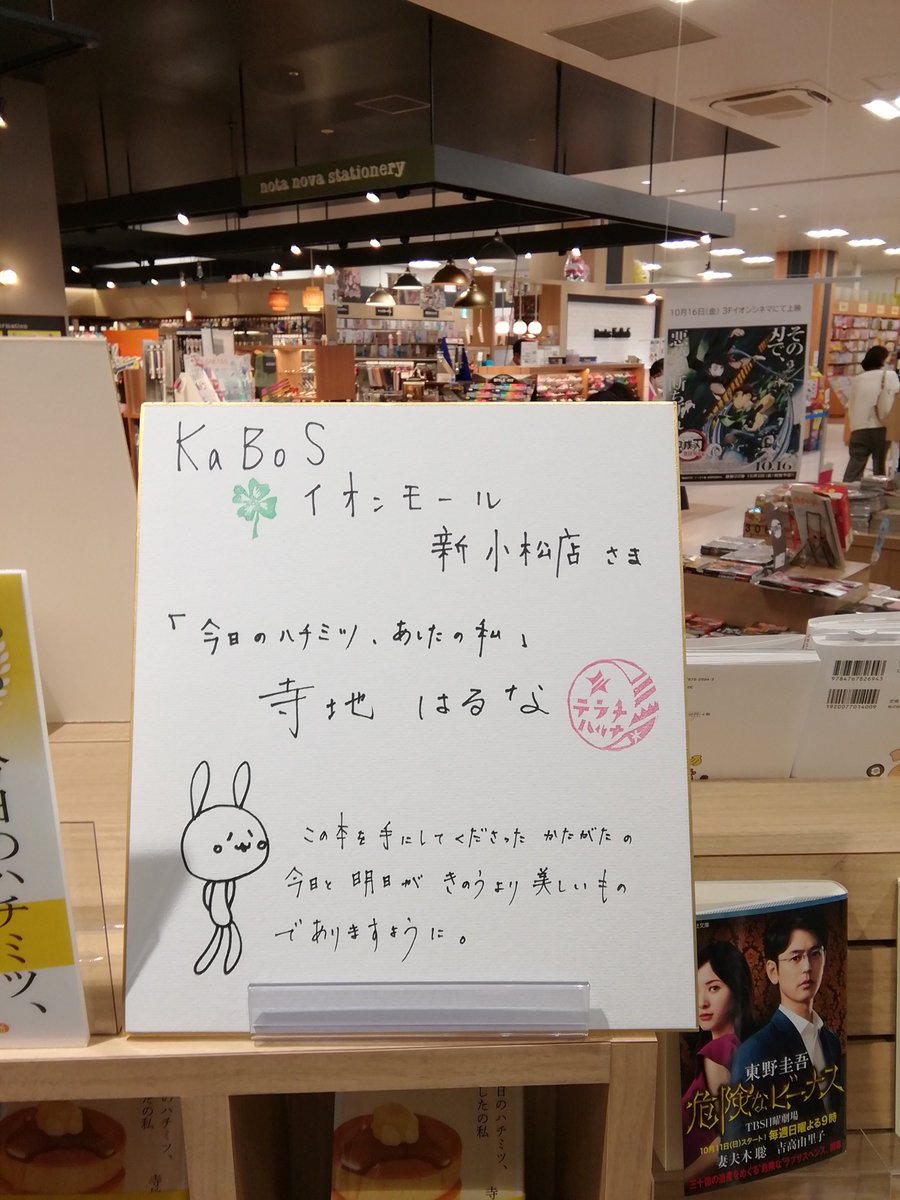 nota nova stationery
10月16日(金) 3Fイオンシネマにて上映
その刃で、
10.16
KaBoS
イオンモール
新小松店 さま
「今日のハチミツ、あしたの私」
寺地 はるな
テラチ
ハルナ
この本を手にしてくださった かたがたの
今日と 明日が きのうより 美しいもの
でありますように。
今日のハチミツ、
9784767826943
1920077014009
東野圭吾
危険なビーナス
TBS日曜劇場
10月11日(日)スタート! 毎週日曜よる9時
妻夫木 聡 吉高由里子
日のハチミツ、
したの私